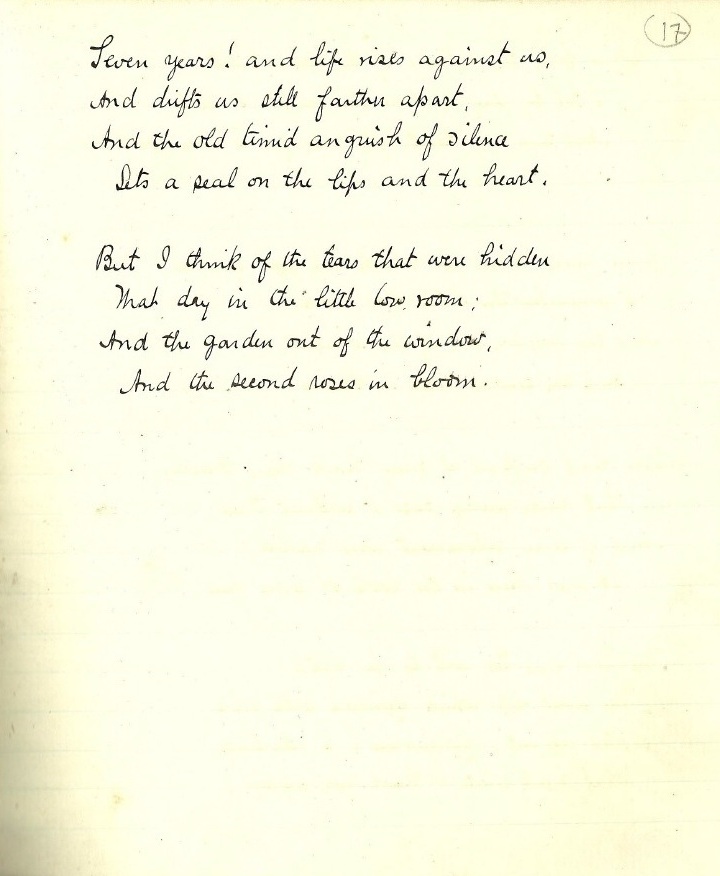 17
Seven years! and life rises against us,
And drifts us still farther apart,
And the old timid anguish of silence
Sets a seal on the lips and the heart.
But I think of the tears that were hidden
That day in the little low room;
And the garden out of the window,
And the second roses in bloom.